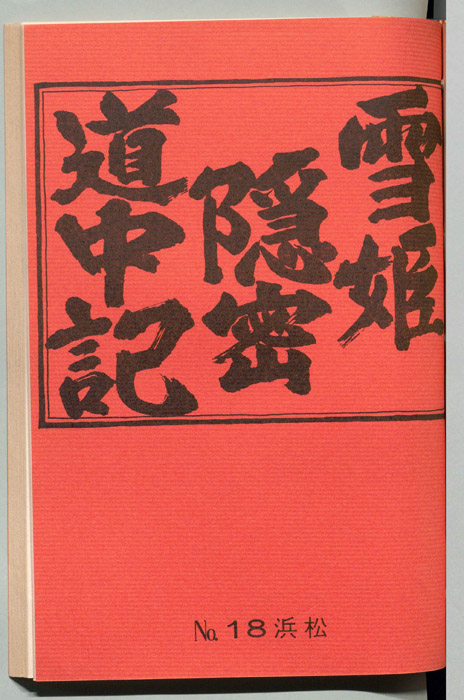 雪姫
隠密
道中記
No. 18 浜松